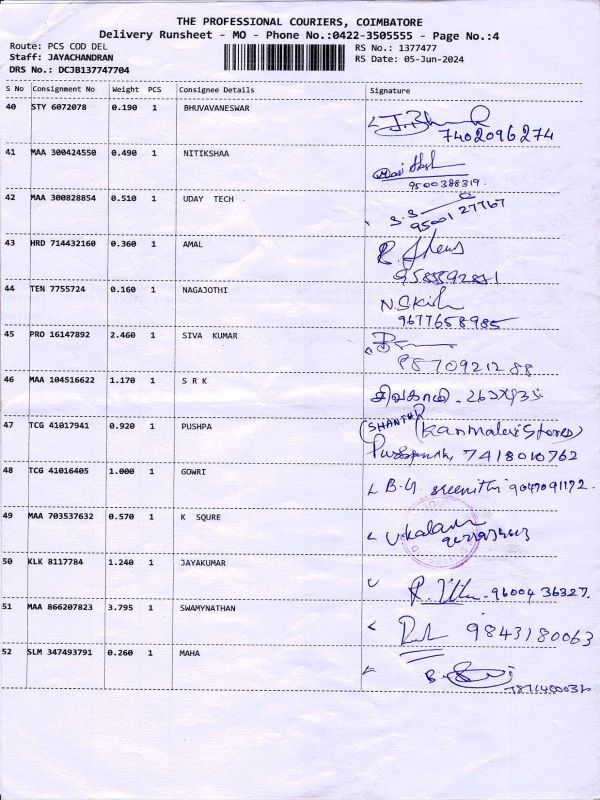 THE PROFESSIONAL COURIERS, COIMBATORE
Delivery Runsheet - MO - Phone No.:0422-3505555 - Page No.:4
Route: PCS COD DEL RS No.: 1377477
Staff: JAYACHANDRAN RS Date: 05-Jun-2024
DRS No.: DCJB137747704
S No Consignment No Weight PCS Consignee Details Signature
40 STY 6072078 0.190 1 BHUVAVANESWAR
7402096274
41 MAA 300424550 0.490 1 NITIKSHAA
9500388319.
42 MAA 300828854 0.510 1 UDAY TECH
95001 27767
43 HRD 714432160 0.360 1 AMAL
44 TEN 7755724 0.160 1 NAGAJOTHI
9677658985
45 PRO 16147892 2.460 1 SIVA KUMAR
46 MAA 104516622 1.170 1 S R K
சிவகாமி
47 TCG 41017941 0.920 1 PUSHPA
7418010762
48 TCG 41016405 1.000 1 GOWRI B.G sreenithi 9047091172.
49 MAA 703537632 0.570 1 K SQURE
50 KLK 8117784 1.240 1 JAYAKUMAR
96004 36327.
51 MAA 866207823 3.795 1 SWAMYNATHAN
9843180063
52 SLM 347493791 0.260 1 MAHA